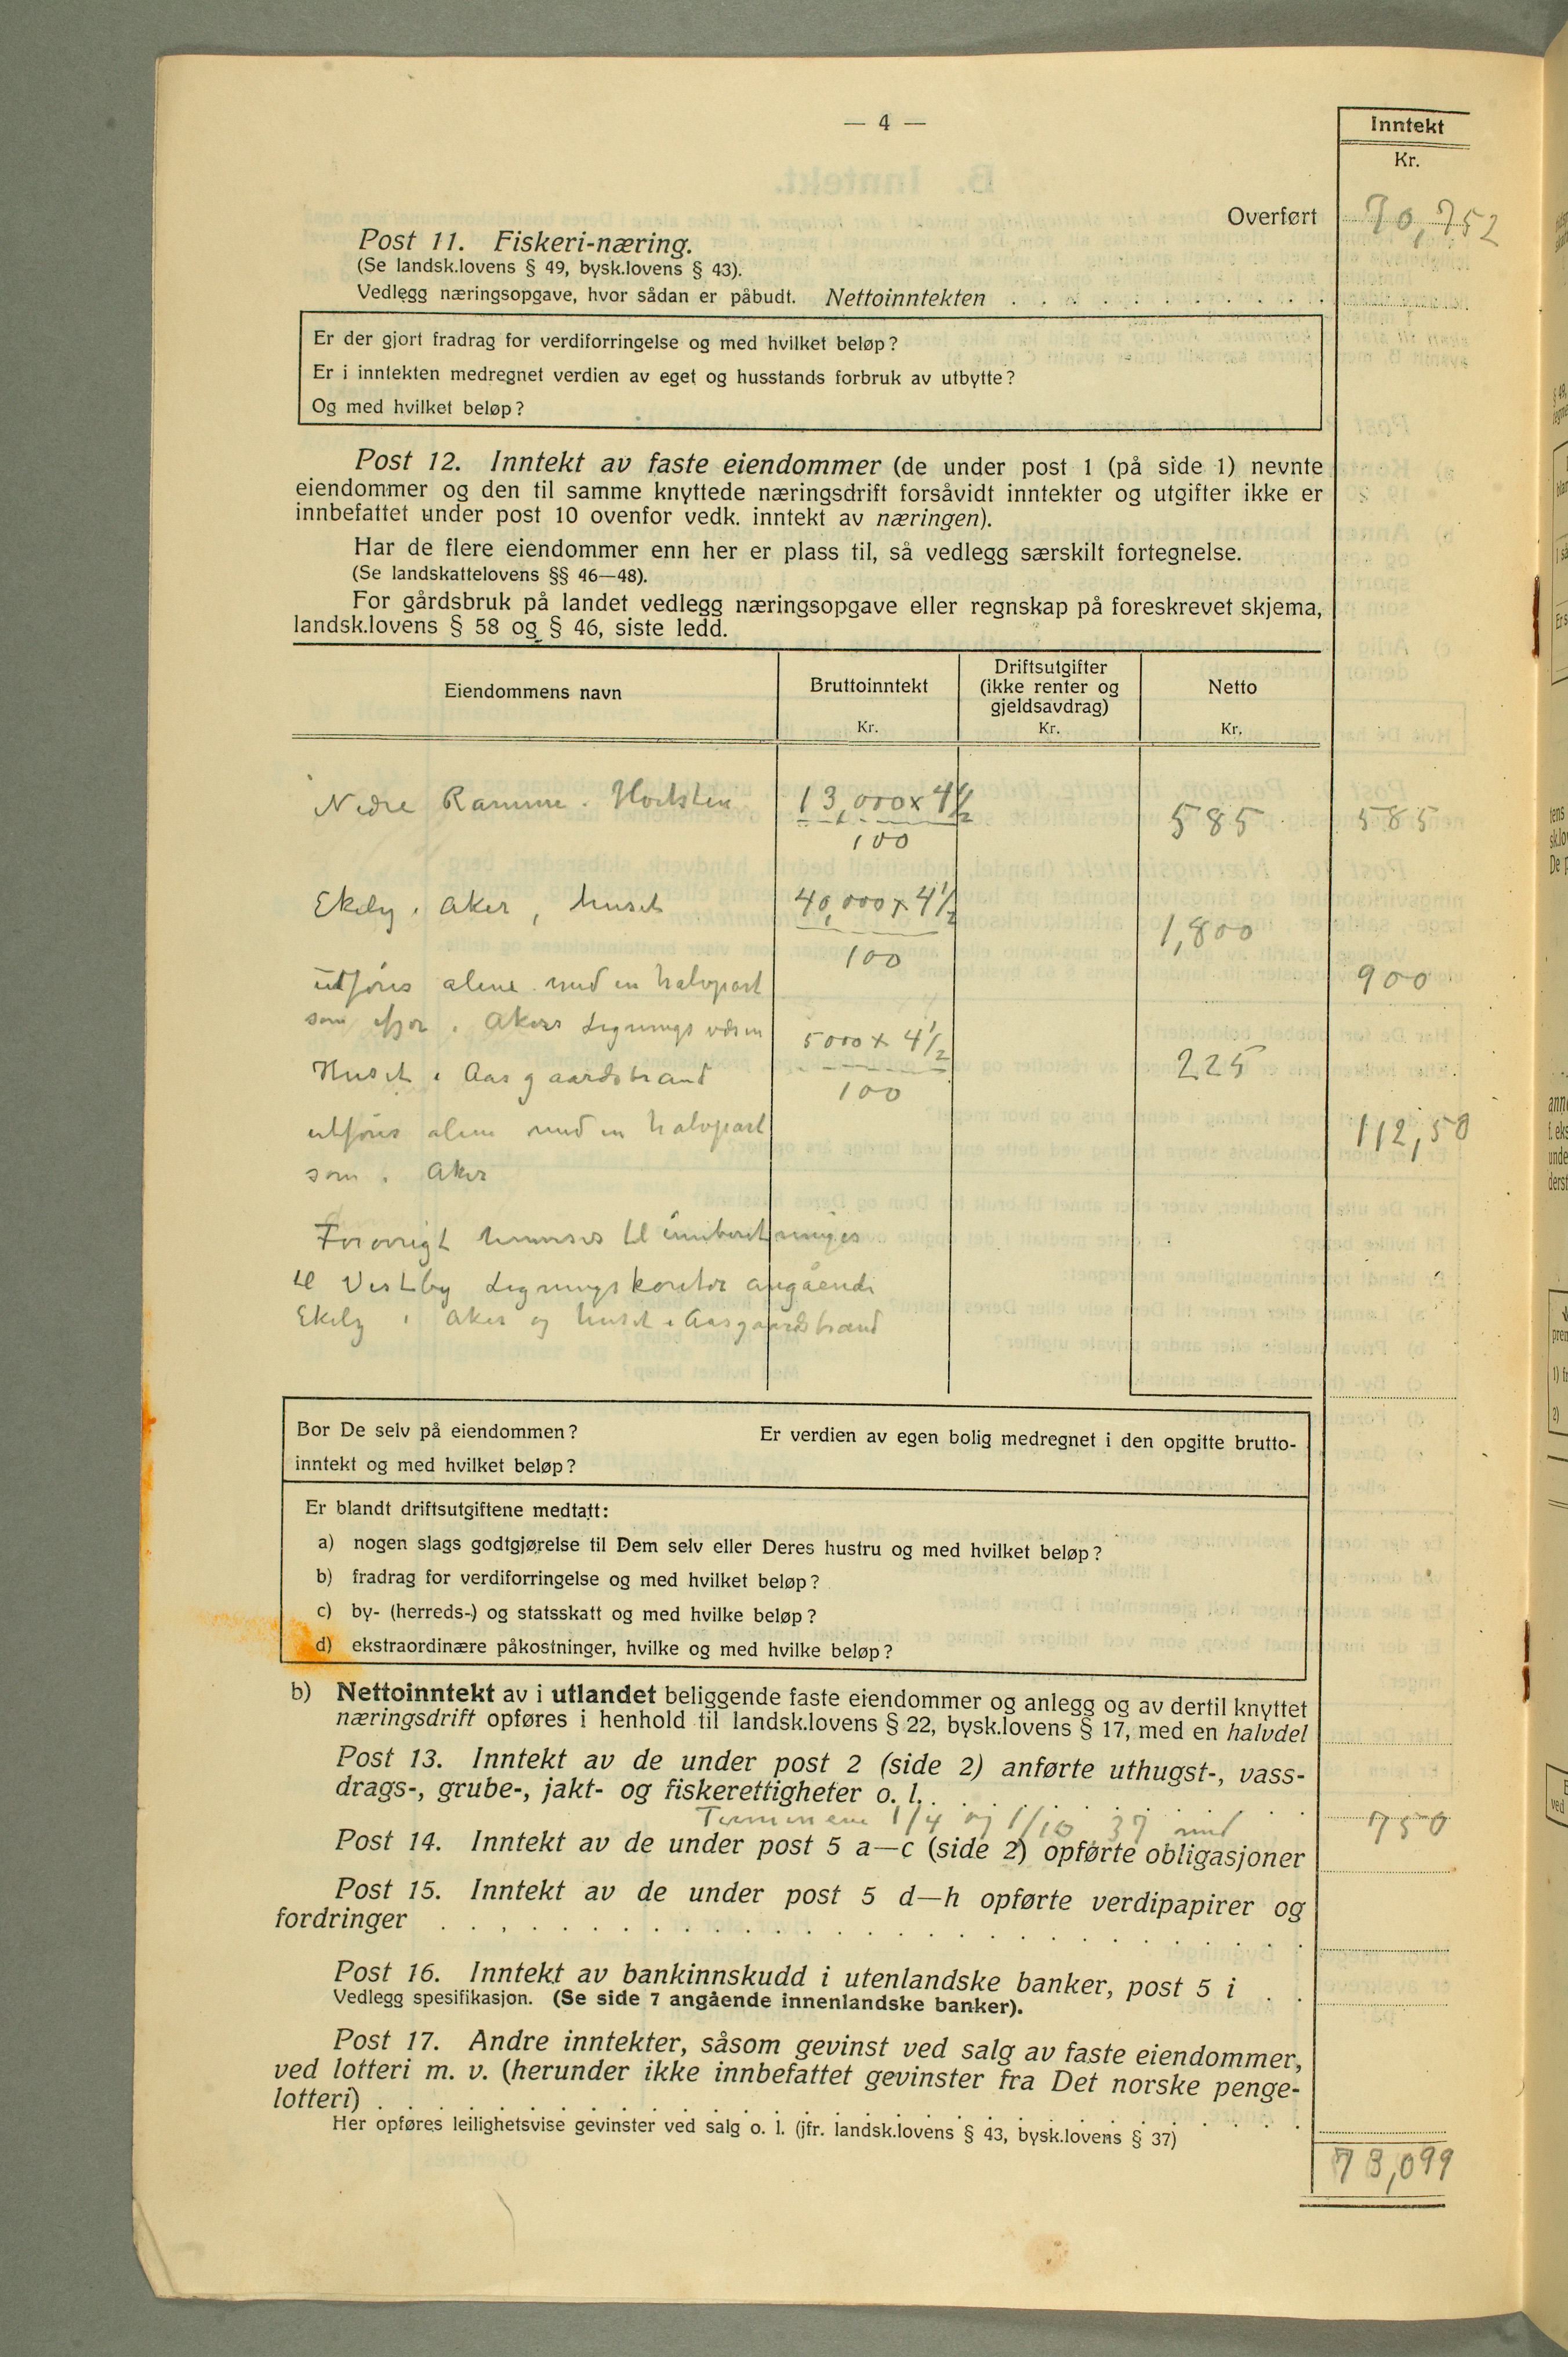 — 4 —
Inntekt
Kr.
Overført 70,752
Post 11. Fiskeri-næring.
(Se landsk.lovens § 49, bysk.lovens § 43).
Vedlegg næringsopgave, hvor sådan er påbudt. Nettoinntekten . . . . . . . . . . .
Er der gjort fradrag for verdiforringelse og med hvilket beløp?
Er i inntekten medregnet verdien av eget og husstands forbruk av utbytte?
Og med hvilket beløp?
Post 12. Inntekt av faste eiendommer (de under post 1 (på side 1) nevnte
eiendommer og den til samme knyttede næringsdrift forsåvidt inntekter og utgifter ikke er
innbefattet under post 10 ovenfor vedk. inntekt av næringen).
Har de flere eiendommer enn her er plass til, så vedlegg særskilt fortegnelse.
(Se landskattelovens §§ 46—48).
For gårdsbruk på landet vedlegg næringsopgave eller regnskap på foreskrevet skjema,
landsk.lovens § 58 og § 46, siste ledd.
Eiendommens navn
Bruttoinntekt
Kr.
Driftsutgifter
(ikke renter og
gjeldsavdrag)
Kr.
Netto
Kr.
Nedre Ramme. Hvitsten 13,000 x 4½ 585 585
100
Ekely i Aker, huset 40,000 x 4½ 1,800
100
utføres alene med en halvpart 900
som ifjor i Akers Ligningsvæsen
5000 x 4½
Huset i Aasgaardstrand 225
100
utføres alene med en halvpart 112,50
som i Aker
Forøvrigt henvises til innberetninges
til Vestby Ligningskontor angående
Ekely i Aker og huset i Aasgaardstrand
Bor De selv på eiendommen? Er verdien av egen bolig medregnet i den opgitte brutto-
inntekt og med hvilket beløp?
Er blandt driftsutgiftene medtatt:
a) nogen slags godtgjørelse til Dem selv eller Deres hustru og med hvilket beløp?
b) fradrag for verdiforringelse og med hvilket beløp?
c) by- (herreds-) og statsskatt og med hvilke beløp?
d) ekstraordinære påkostninger, hvilke og med hvilke beløp?
b) Nettoinntekt av i utlandet beliggende faste eiendommer og anlegg og av dertil knyttet
næringsdrift opføres i henhold til landsk.lovens § 22, bysk.lovens § 17, med en halvdel
Post 13. Inntekt av de under post 2 (side 2) anførte uthugst-, vass-
drags-, grube-, jakt- og fiskerettigheter o. l. . . . . . . . . . . .
Terminene 1/4 og 1/10 37 med 750
Post 14. Inntekt av de under post 5 a—c (side 2) opførte obligasjoner
Post 15. Inntekt av de under post 5 d—h opførte verdipapirer og
fordringer . . . . . . . . . . . . . . . . . . . . . . . . . . . . .
Post 16. Inntekt av bankinnskudd i utenlandske banker, post 5 i . .
Vedlegg spesifikasjon. (Se side 7 angående innenlandske banker).
Post 17. Andre inntekter, såsom gevinst ved salg av faste eiendommer,
ved lotteri m. v. (herunder ikke innbefattet gevinster fra Det norske penge-
lotteri) . . . . . . . . . . . . . . . . . . . . . . . . . . . . . .
Her opføres leilighetsvise gevinster ved salg o. l. (jfr. landsk.lovens § 43, bysk.lovens § 37)
73,099